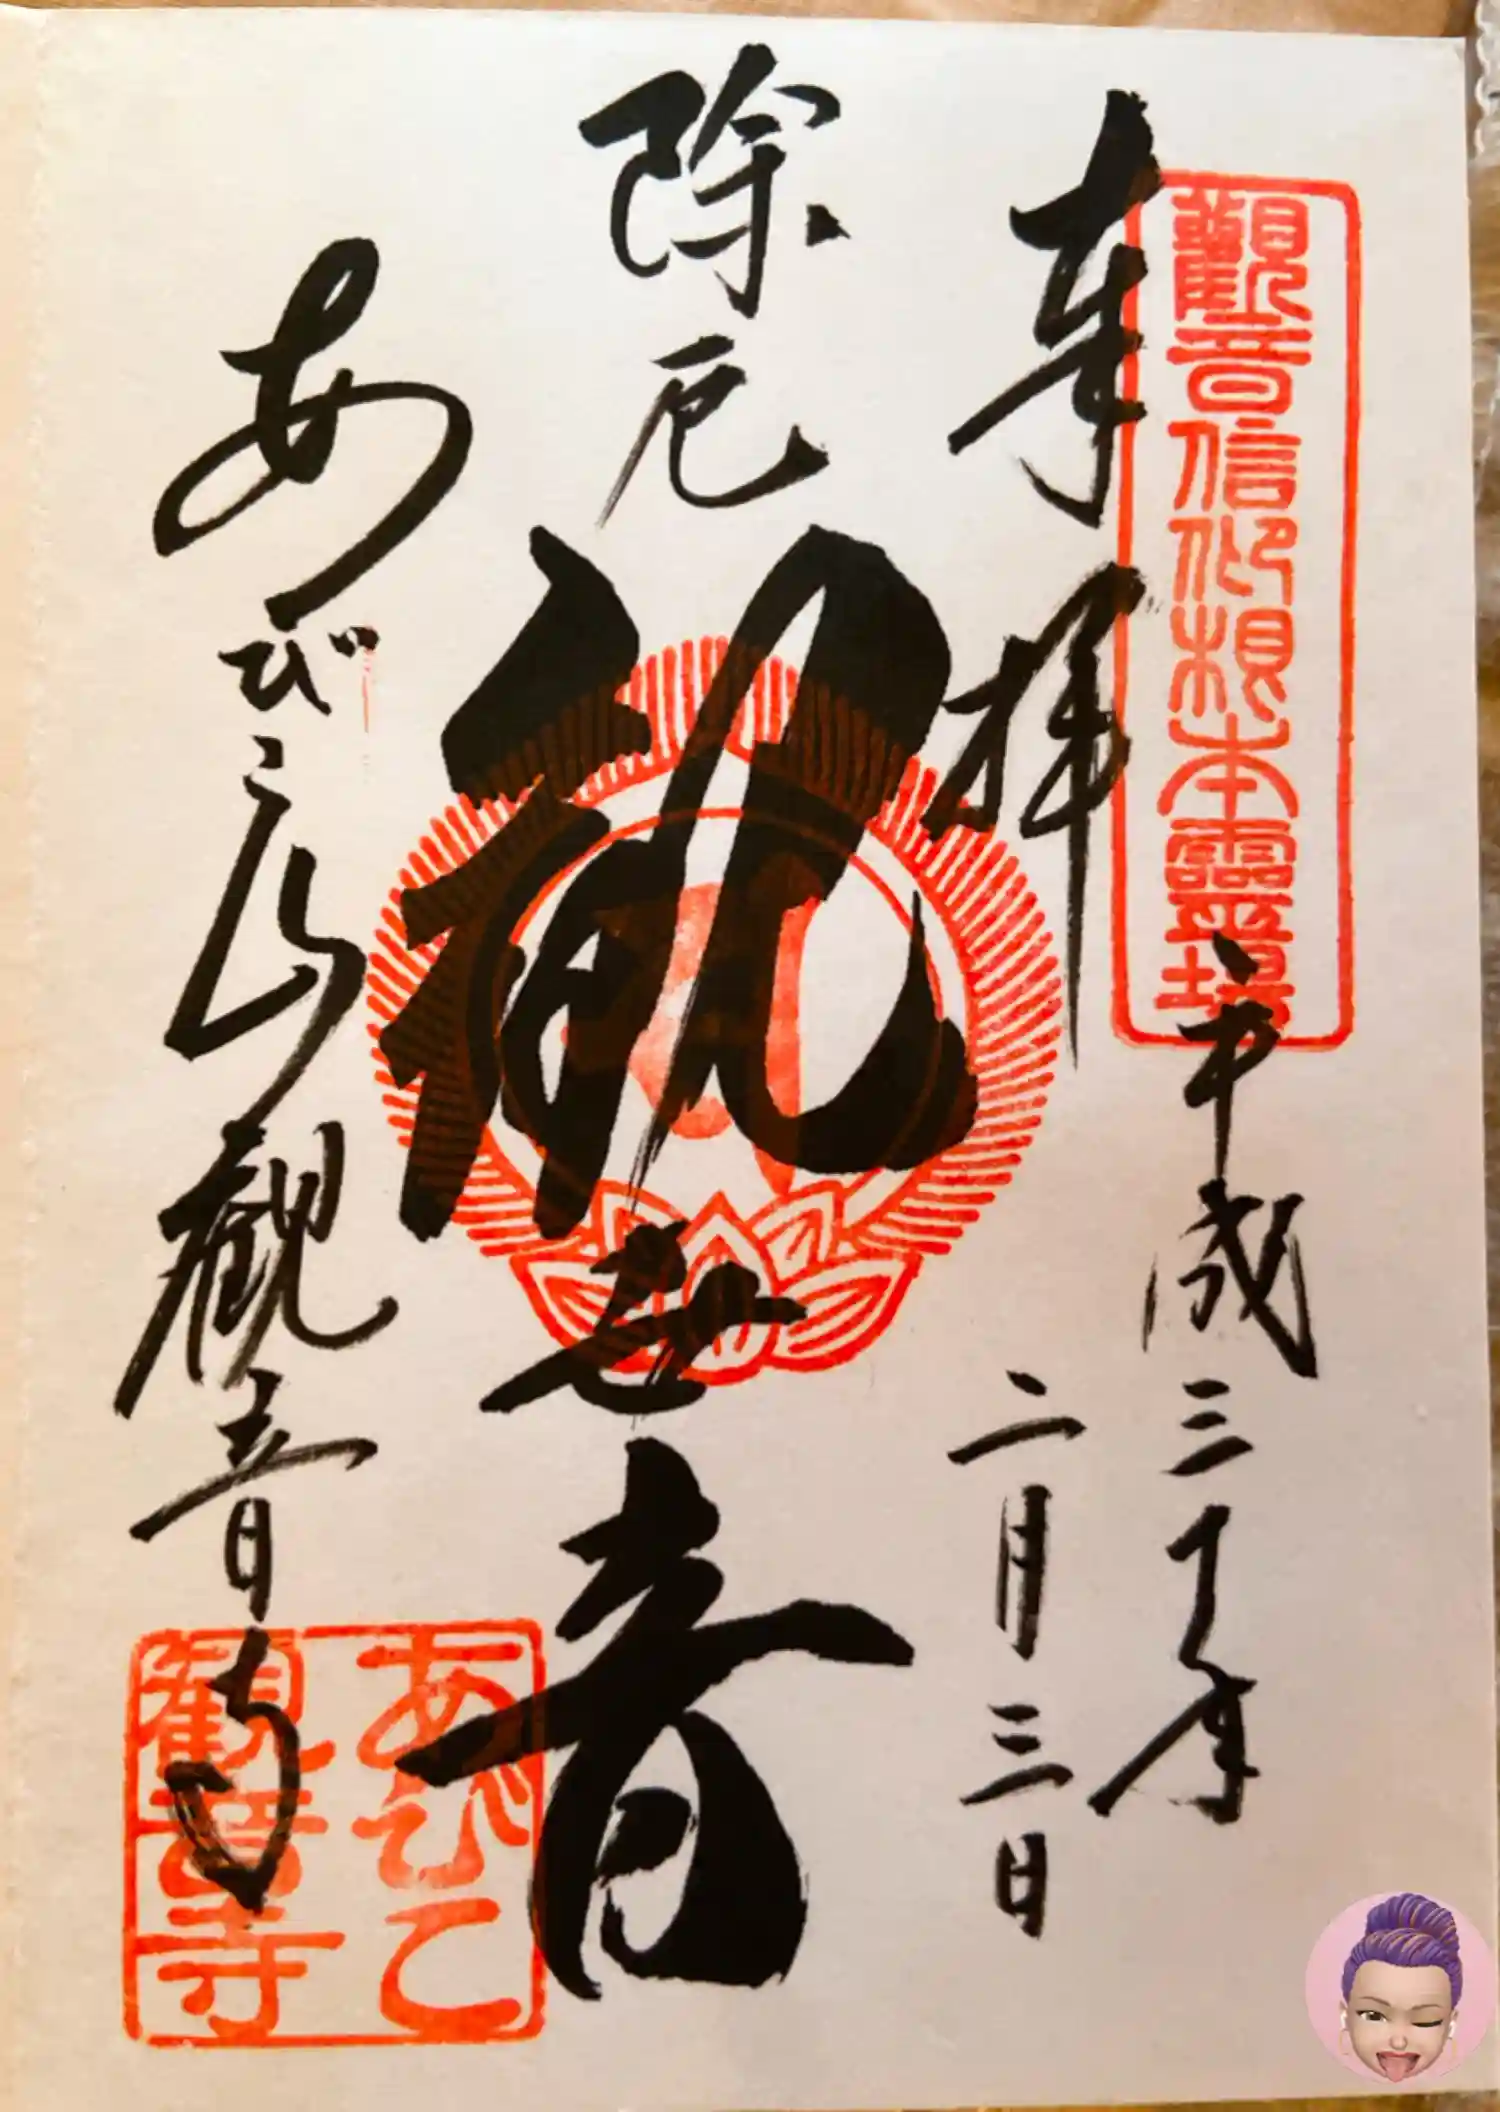 奉拝
観音信仰根本霊場
平成三十年
二月三日
除厄
観世音
あびこ山観音寺
あびこ
観音寺